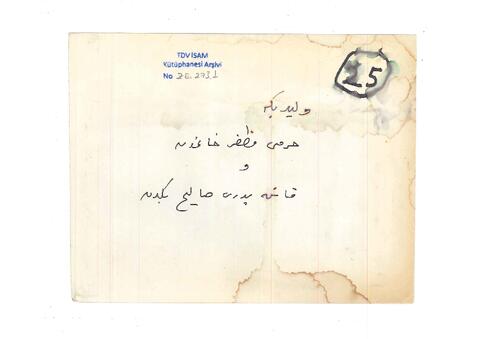 TDV İSAM
Kütüphanesi Arşivi
No 2E.2731
25
ولید بكه
حرمی مظفر خانمدن
و
قاین پدری صالح بكدن